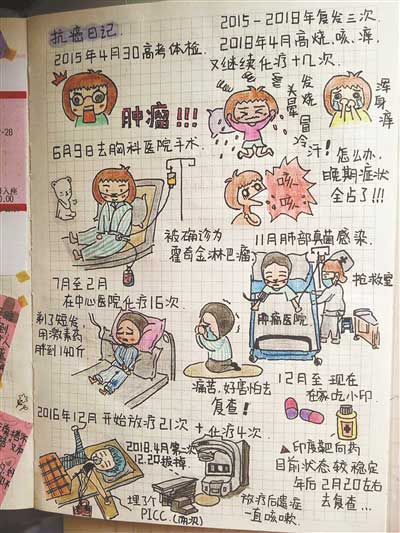 抗癌日记
2015年4月30高考体检.
肿瘤!!!
6月9日去胸科医院手术.
被确诊为
霍奇金淋巴瘤
7月至2月
在中心医院化疗16次
剃了短发,
用激素药
胖到140斤
痛苦,好害怕去
复查!
2016年12月 开始放疗21次 + 化疗4次.
2018.4月第二次
2.20拔掉.
埋了个
PICC.(两次)
放疗后遗症
一直咳嗽.
2015-2018年复发三次.
2018年4月高烧、咳、痒
又继续化疗十几次.
头晕
发烧
冒冷汗!
浑身痒
咳
咳
怎么办,
晚期症状
全占了!!!
11月肺部真菌感染.
抢救室
肿瘤医院
12月至 现在
在家吃小印.
印度靶向药
目前状态较稳定
年后2月20左右
去复查...